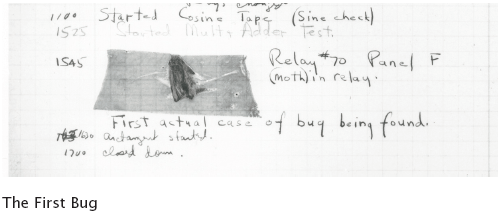 1100 Started Cosine Tape (Sine check)
1525 Started Mult + Adder Test.
1545 Relay #70 Panel F
(moth) in relay.
First actual case of bug being found.
1630 antangent started.
1700 closed down.
The First Bug